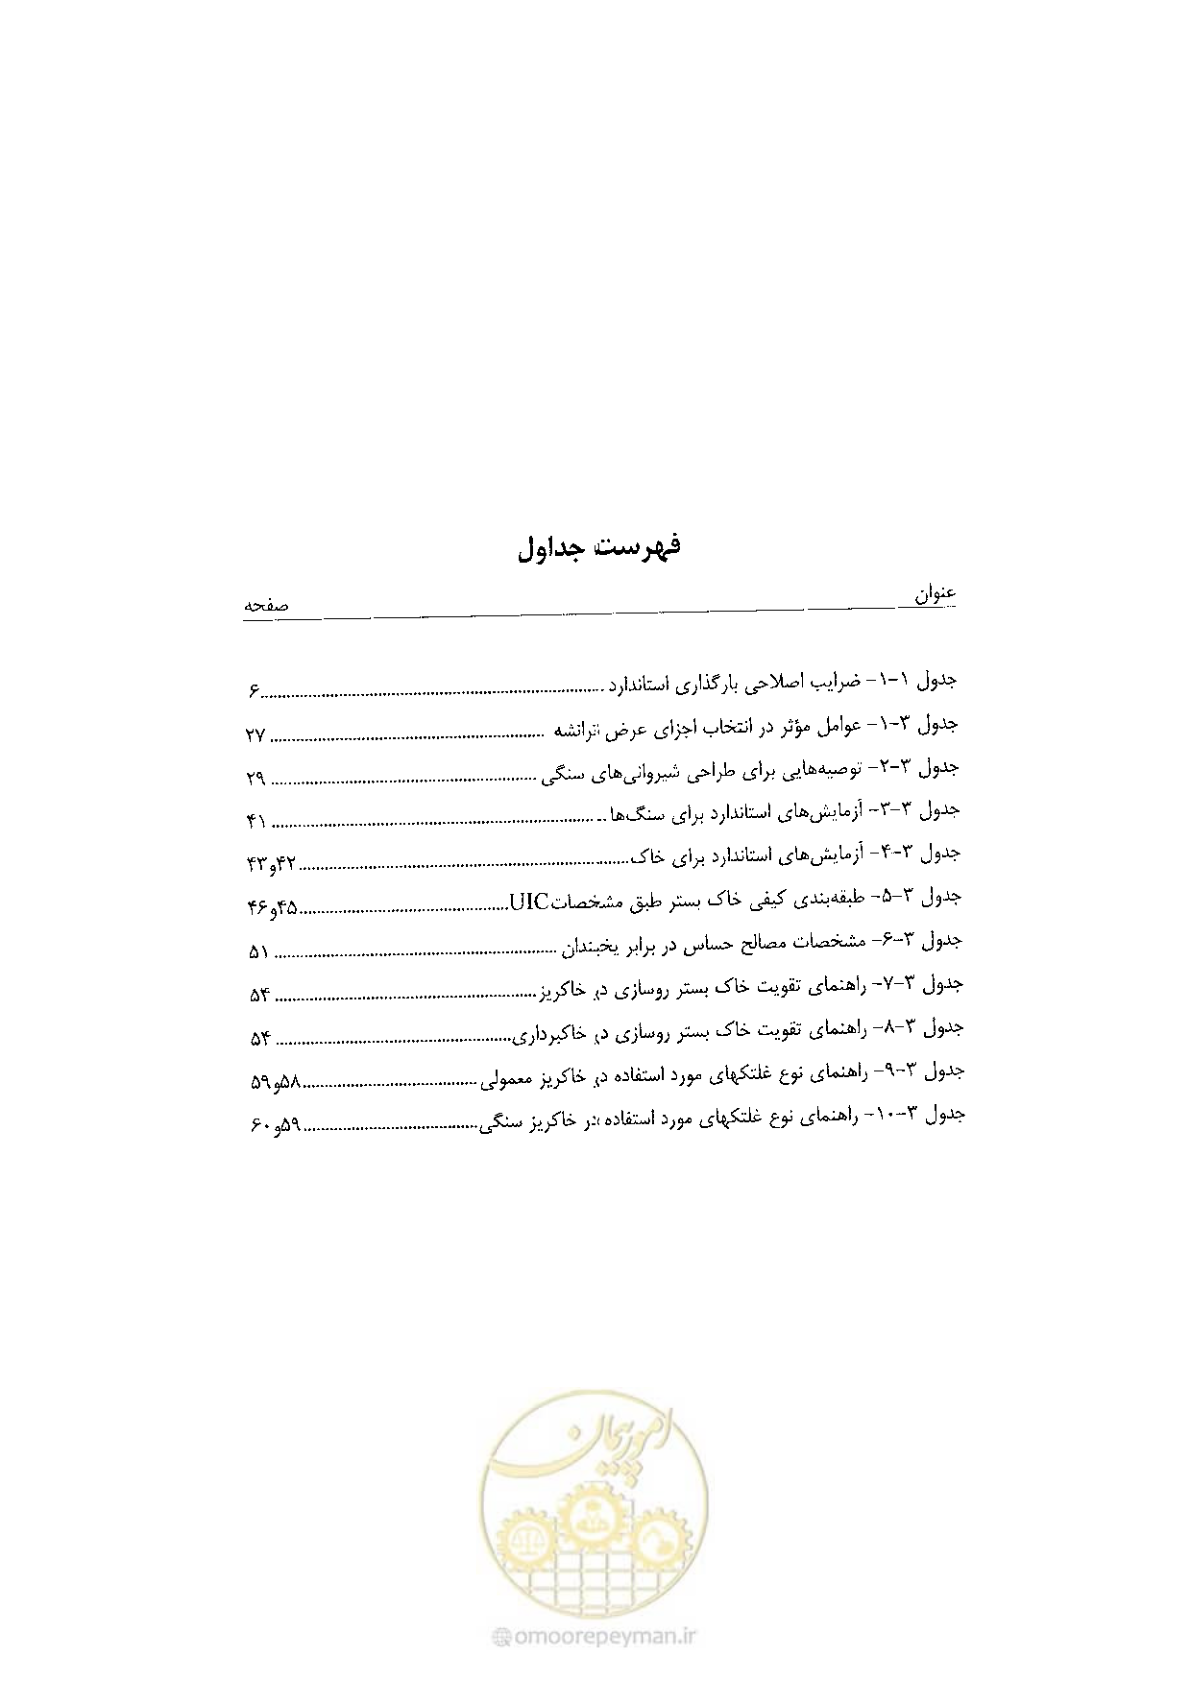 فهرست جداول
عنوان صفحه
جدول ۱-۱- ضرایب اصلاحی بارگذاری استاندارد ۶
جدول ۳-۱- عوامل مؤثر در انتخاب اجزای عرض ترانشه ۲۷
جدول ۳-۲- توصیه‌هایی برای طراحی شیروانی‌های سنگی ۲۹
جدول ۳-۳- آزمایش‌های استاندارد برای سنگ‌ها ۴۱
جدول ۳-۴- آزمایش‌های استاندارد برای خاک ۴۲و۴۳
جدول ۳-۵- طبقه‌بندی کیفی خاک بستر طبق مشخصات UIC ۴۵و۴۶
جدول ۳-۶- مشخصات مصالح حساس در برابر یخبندان ۵۱
جدول ۳-۷- راهنمای تقویت خاک بستر روسازی در خاکریز ۵۴
جدول ۳-۸- راهنمای تقویت خاک بستر روسازی در خاکبرداری ۵۴
جدول ۳-۹- راهنمای نوع غلتکهای مورد استفاده در خاکریز معمولی ۵۸و۵۹
جدول ۳-۱۰- راهنمای نوع غلتکهای مورد استفاده در خاکریز سنگی ۵۹و۶۰
امور پیمان
@omoorepeyman.ir